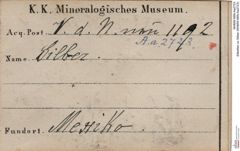 K. K. Mineralogisches Museum.
Acq. Post V. d. N. nou 1192
A.a. 2773
Name Silber.
Fundort. Mexiko.